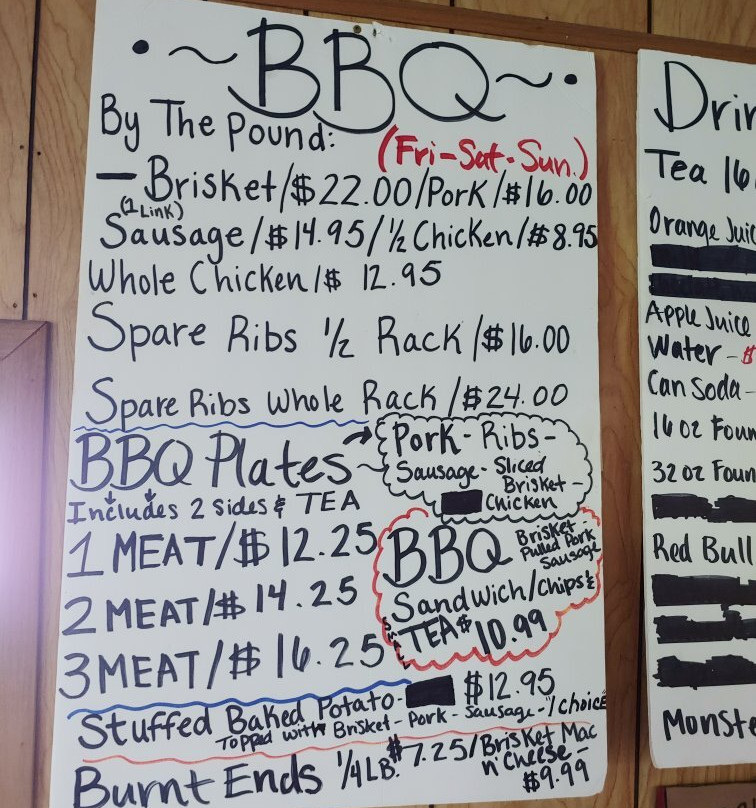 BBQ
By The Pound:
(Fri-Sat-Sun.)
- Brisket/$22.00/Pork/$16.00
(1 Link)
Sausage/$14.95/½ Chicken/$8.95
Whole Chicken/$ 12.95
Spare Ribs ½ Rack/$16.00
Spare Ribs Whole Rack/$24.00
BBQ Plates
Includes 2 sides & TEA
Pork-Ribs-
Sausage-Sliced
Brisket-
Chicken
1 MEAT/$12.25
2 MEAT/$14.25
3 MEAT/$16.25
BBQ
Brisket-
Pulled Pork
Sausage
Sandwich/Chips &
TEA $10.99
Stuffed Baked Potato- $12.95
Topped with Brisket-Pork-Sausage-1/choice
Burnt Ends ¼LB. $7.25/Brisket Mac
n' Cheese-
$9.99
Drin
Tea 16
Orange Juic
Apple Juice
Water - $
Can Soda-
16 oz Foun
32 oz Foun
Red Bull
Monste